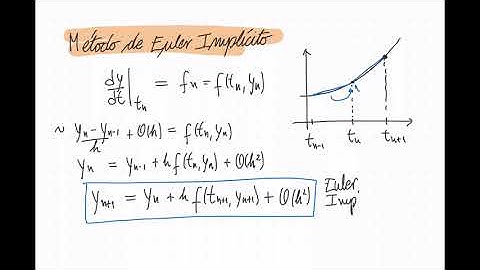 Método de Euler Implícito
dy/dt|tn = fn = f(tn, yn)
~ yn - yn-1 / h + O(h) = f(tn, yn)
yn = yn-1 + h f(tn, yn) + O(h²)
yn+1 = yn + h f(tn+1, yn+1) + O(h²)
Euler.
Imp
tn-1 tn tn+1